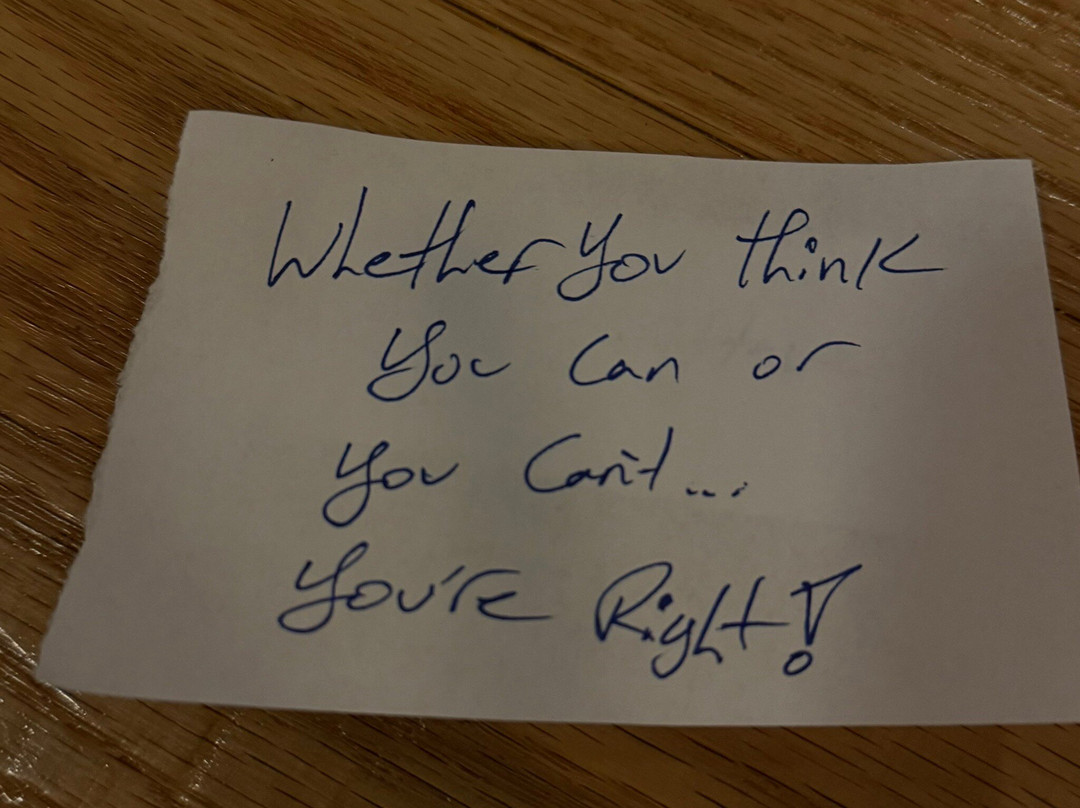 Whether You think
You Can or
You Can't...
You're Right!